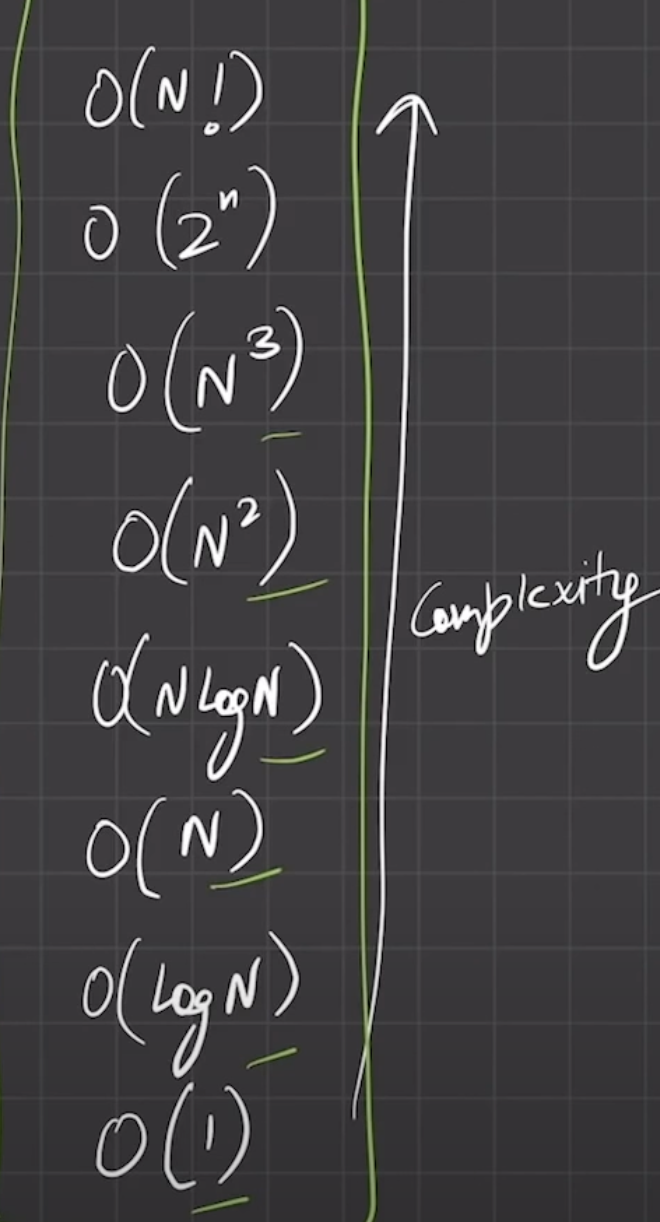 O(N!)
O(2ⁿ)
O(N³)
O(N²)
O(NLogN)
O(N)
O(LogN)
O(1)
Complexity